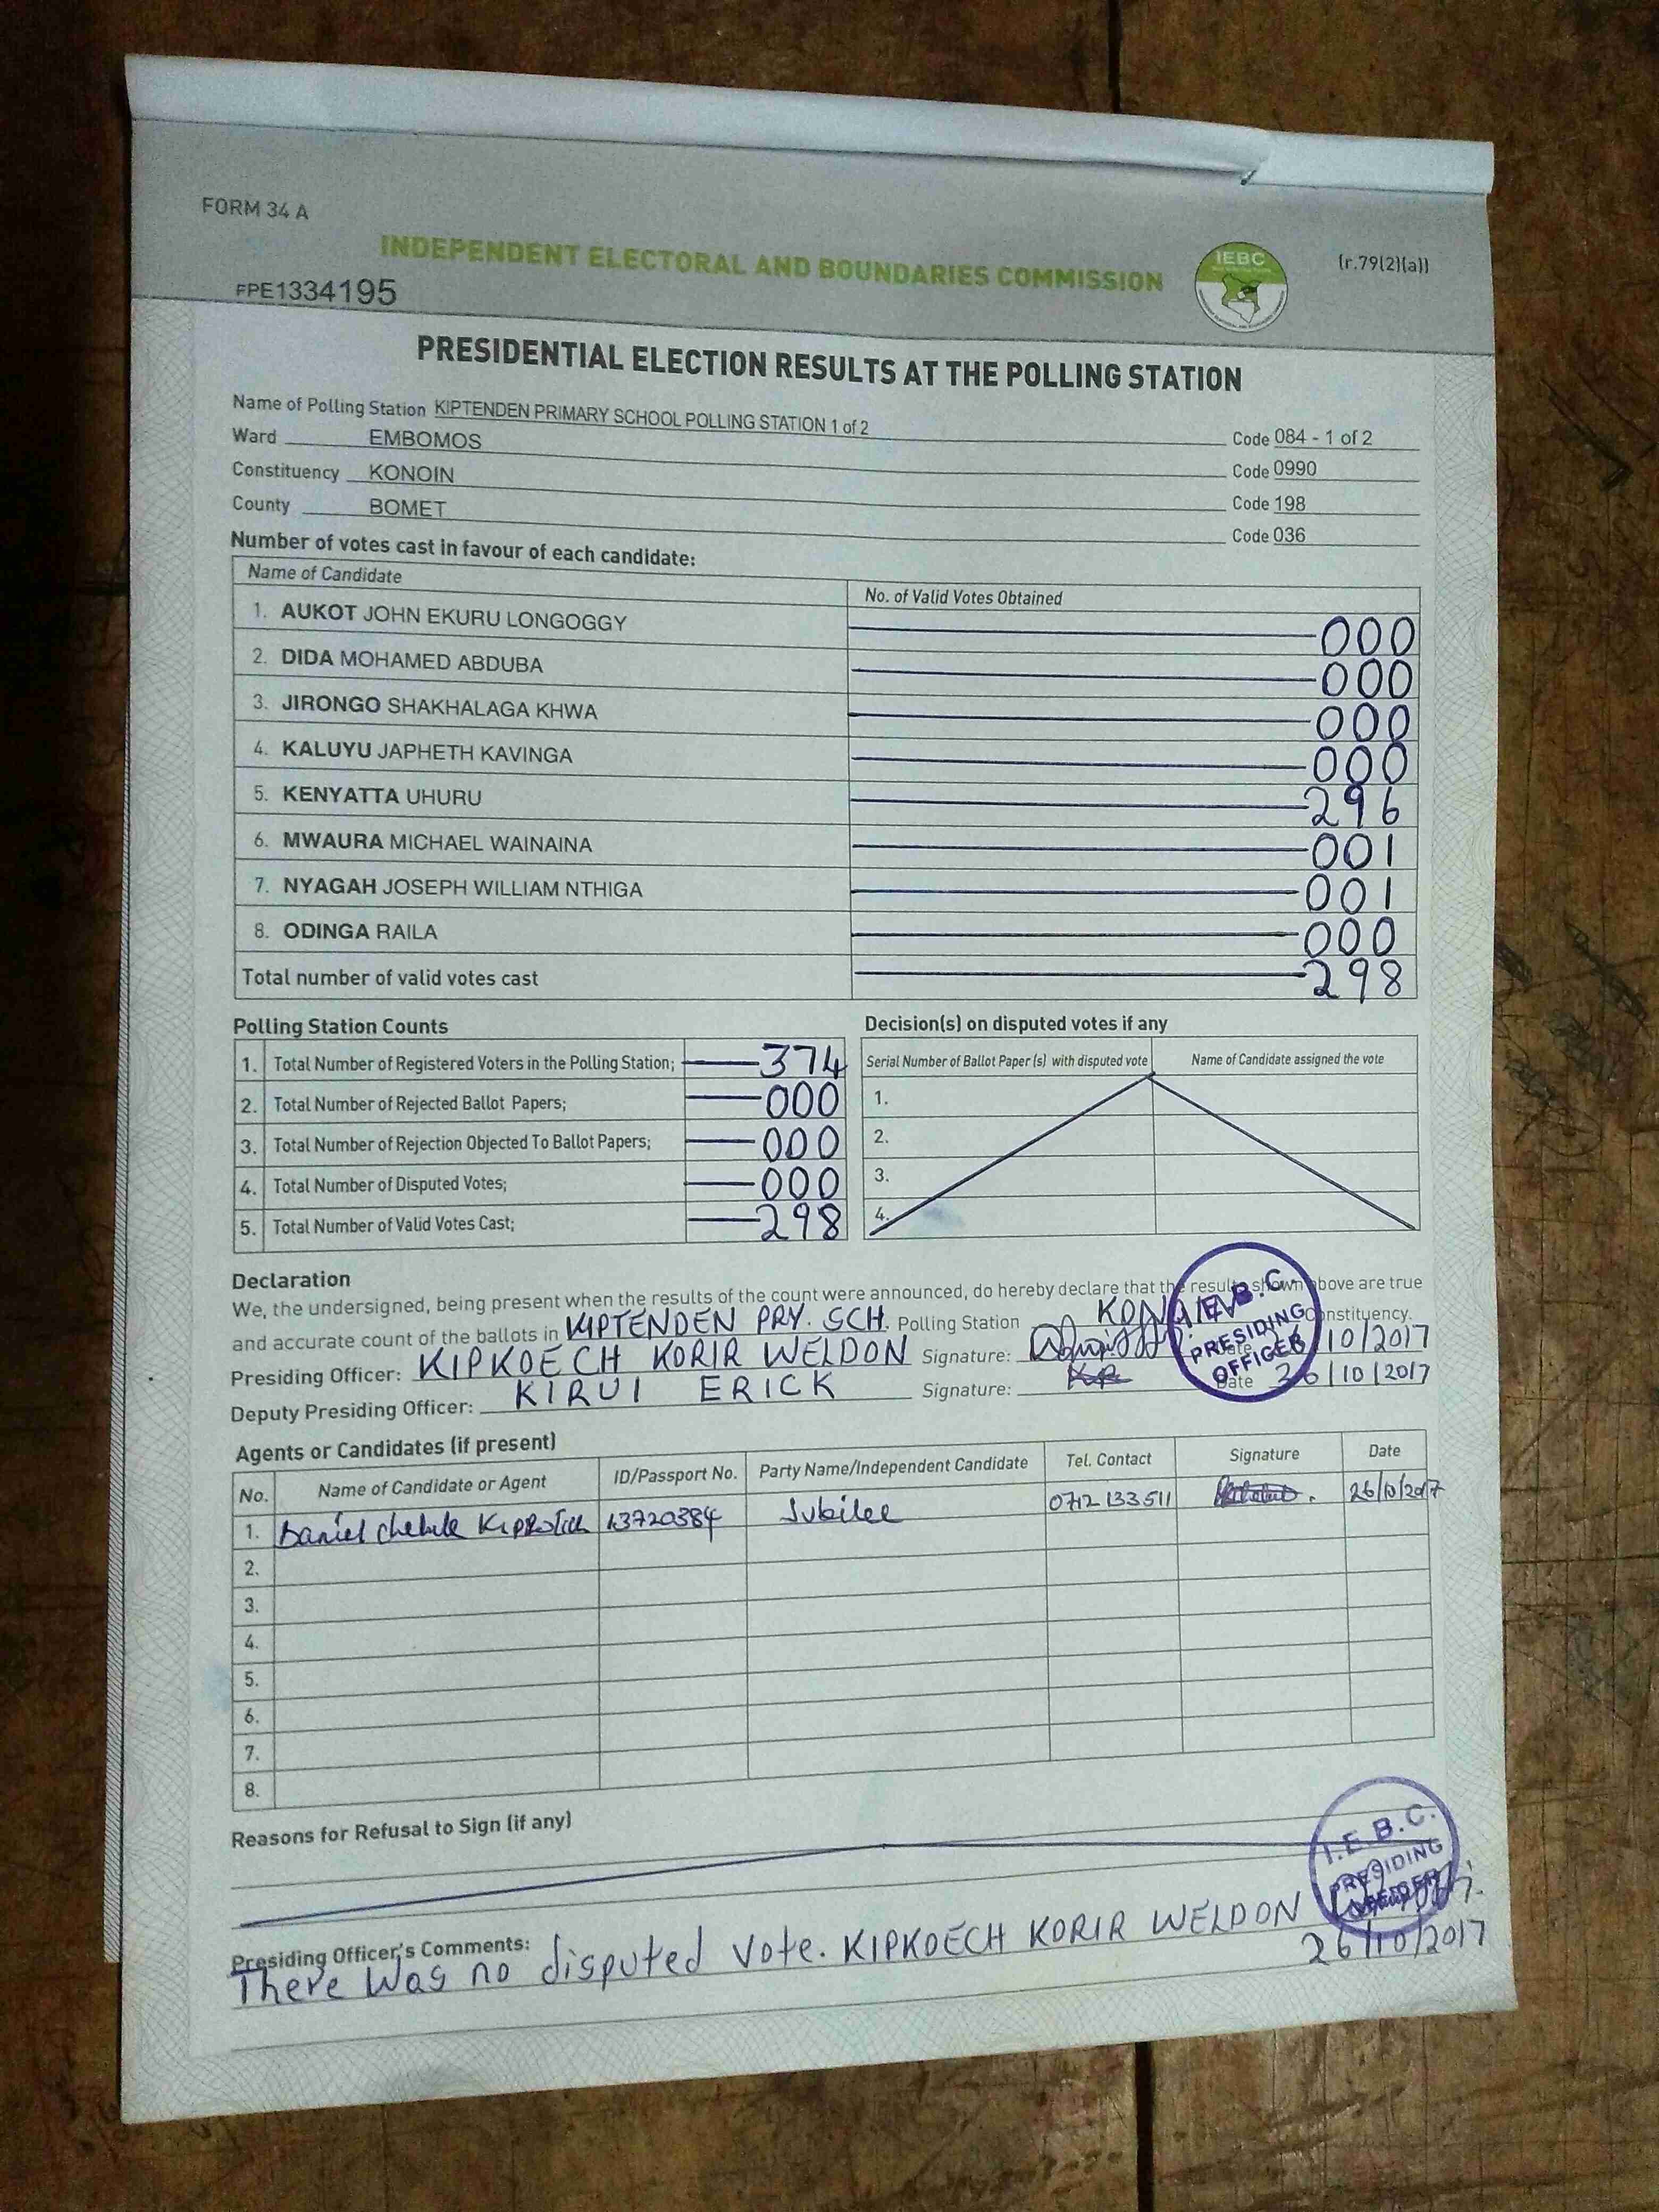 FORM 34 A
INDEPENDENT ELECTORAL AND BOUNDARIES COMMISSION
IEBC
(r.79(2)(a))
FPE1334195
PRESIDENTIAL ELECTION RESULTS AT THE POLLING STATION
Name of Polling Station KIPTENDEN PRIMARY SCHOOL POLLING STATION 1 of 2 Code 084 - 1 of 2
Ward EMBOMOS Code 0990
Constituency KONOIN Code 198
County BOMET Code 036
Number of votes cast in favour of each candidate:
Name of Candidate No. of Valid Votes Obtained
1. AUKOT JOHN EKURU LONGOGGY 000
2. DIDA MOHAMED ABDUBA 000
3. JIRONGO SHAKHALAGA KHWA 000
4. KALUYU JAPHETH KAVINGA 000
5. KENYATTA UHURU 296
6. MWAURA MICHAEL WAINAINA 001
7. NYAGAH JOSEPH WILLIAM NTHIGA 001
8. ODINGA RAILA 000
Total number of valid votes cast 298
Polling Station Counts
1. Total Number of Registered Voters in the Polling Station; 374
2. Total Number of Rejected Ballot Papers; 000
3. Total Number of Rejection Objected To Ballot Papers; 000
4. Total Number of Disputed Votes; 000
5. Total Number of Valid Votes Cast; 298
Decision(s) on disputed votes if any
Serial Number of Ballot Paper (s) with disputed vote Name of Candidate assigned the vote
1.
2.
3.
4.
Declaration
We, the undersigned, being present when the results of the count were announced, do hereby declare that the results shown above are true
and accurate count of the ballots in KIPTENDEN PRY. SCH. Polling Station KONOIN Constituency.
Presiding Officer: KIPKOECH KORIR WELDON Signature: Date 26/10/2017
Deputy Presiding Officer: KIRUI ERICK Signature: Date 26/10/2017
I.E.B.C.
PRESIDING
OFFICER
Agents or Candidates (if present)
No. Name of Candidate or Agent ID/Passport No. Party Name/Independent Candidate Tel. Contact Signature Date
1. Daniel Kiprotich 13720384 Jubilee 0712 133511 26/10/2017
2.
3.
4.
5.
6.
7.
8.
Reasons for Refusal to Sign (if any)
I.E.B.C.
PRESIDING
OFFICER
Presiding Officer's Comments:
There was no disputed vote. KIPKOECH KORIR WELDON
26/10/2017